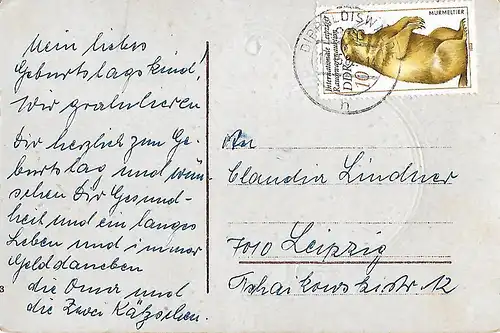 Mein liebes
Geburtstagskind!
Wir gratulieren
Dir herzlich zum Ge-
burtstag und wün-
schen Dir Gesund-
heit und ein langes
Leben und immer
Geld daneben
die Oma und
die Zwei Kätzchen.
MURMELTIER
Internationale Leipziger
Rauchwarenauktion
DDR
10
DIPPOLDISWALDE
h
An
Claudia Lindner
7010 Leipzig
Tschaikowskistr 12
3